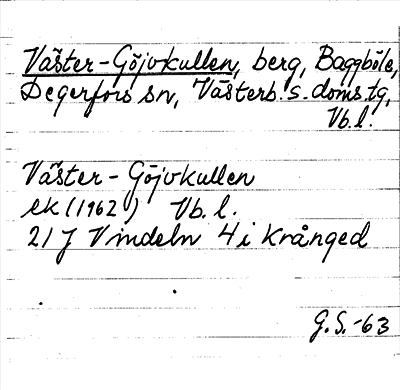 Väster-Göjvkullen, berg, Baggböle,
Degerfors sn, Västerb. s. doms.tg,
Vb.l.
Väster-Göjvkullen
ek (1962) Vb.l.
21J Vindeln 4i Krånged
G.S.-63